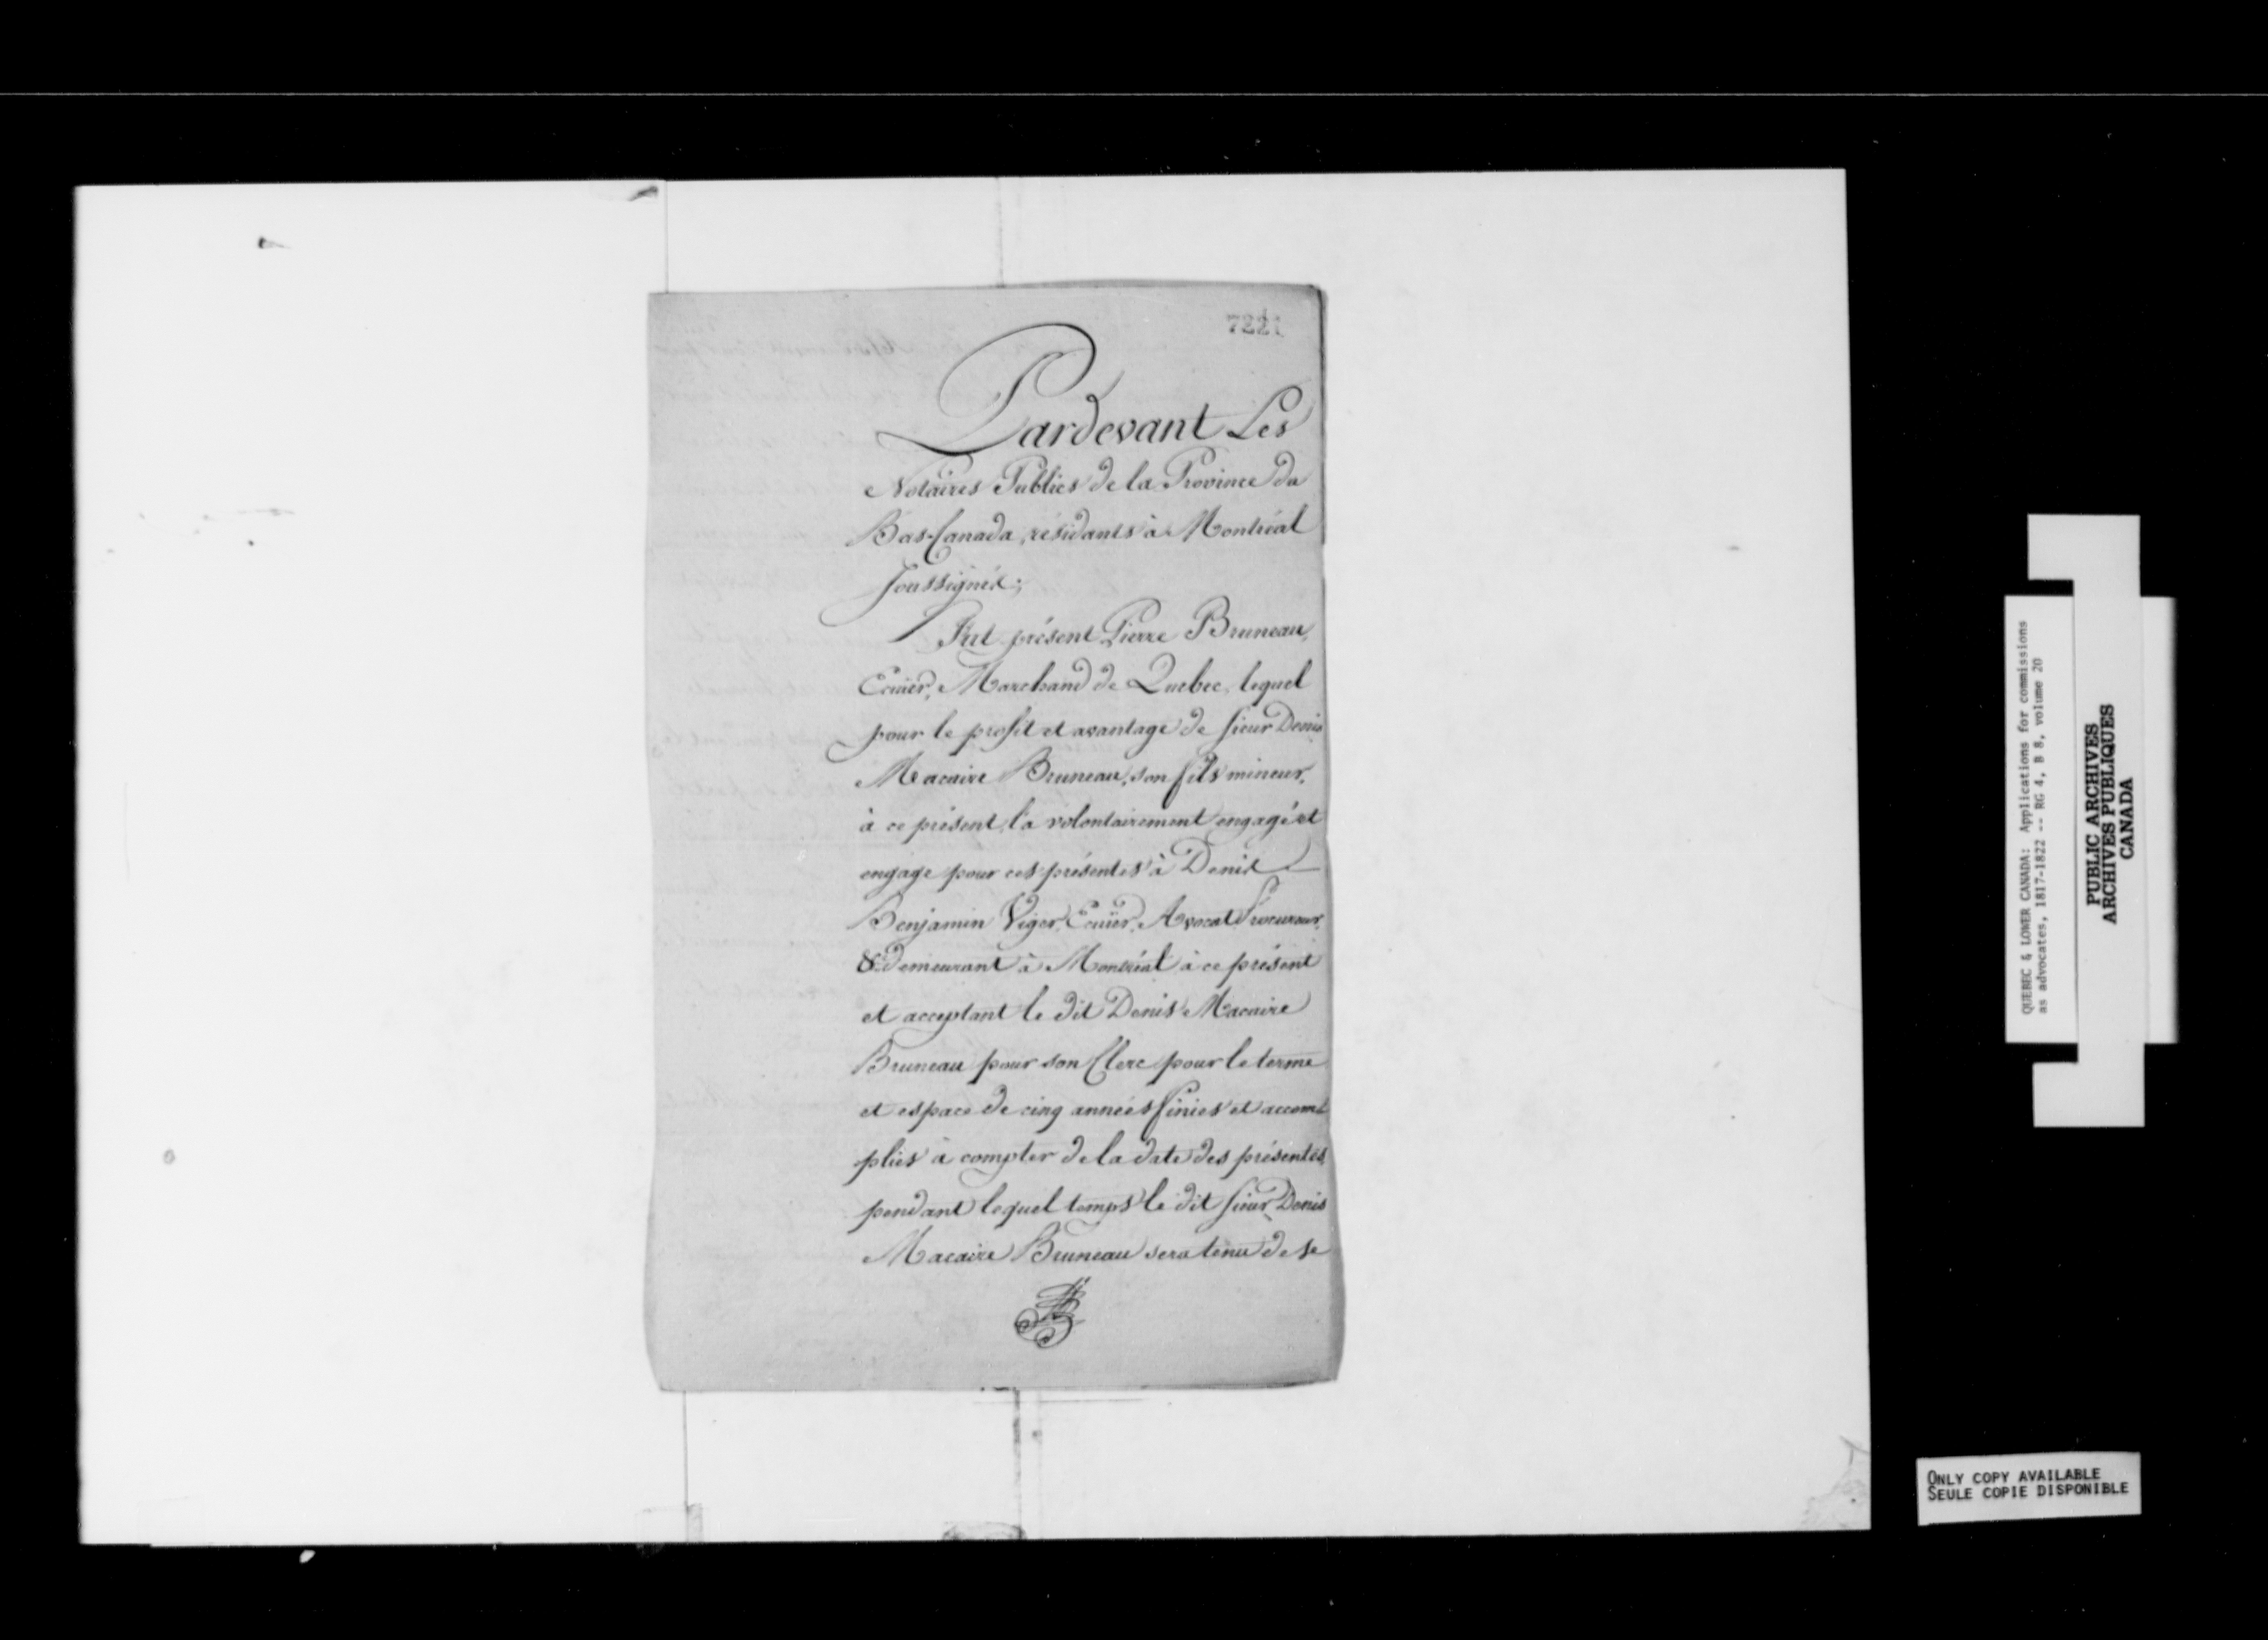 7221
Pardevant Les
Notaires Publics de la Province du
Bas-Canada, résidants à Montréal
Soussignés;
Fut présent Pierre Bruneau,
Ecuïer, Marchand de Quebec, lequel
pour le profit et avantage de Sieur Denis
Macaire Bruneau, son fils mineur,
à ce présent, l'a volontairement engagé et
engage pour ces présentes à Denis
Benjamin Viger, Ecuïer, Avocat Procureur,
&c demeurant à Montréal à ce présent
et acceptant le dit Denis Macaire
Bruneau pour son Clerc pour le terme
et espace de cinq années finies et accom-
plies à compter de la date des présentes,
pendant lequel temps le dit Sieur Denis
Macaire Bruneau sera tenu de se
QUEBEC & LOWER CANADA: Applications for commissions
as advocates, 1817-1822 -- RG 4, B 8, volume 20
PUBLIC ARCHIVES
ARCHIVES PUBLIQUES
CANADA
ONLY COPY AVAILABLE
SEULE COPIE DISPONIBLE